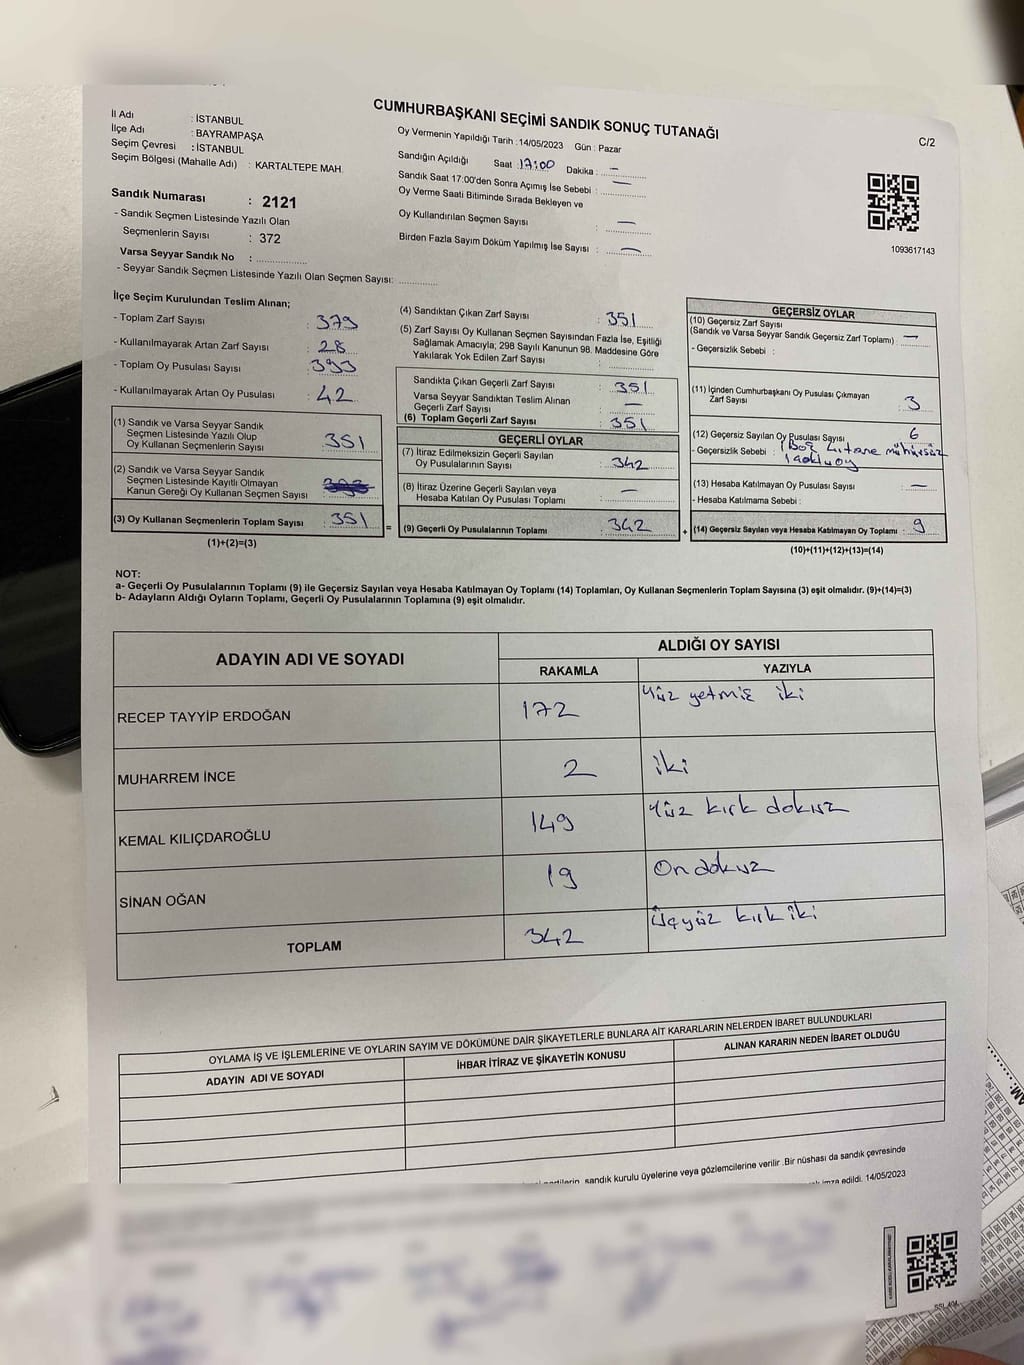 CUMHURBAŞKANI SEÇİMİ SANDIK SONUÇ TUTANAĞI
C/2
İl Adı : İSTANBUL
İlçe Adı : BAYRAMPAŞA
Seçim Çevresi : İSTANBUL
Seçim Bölgesi (Mahalle Adı) : KARTALTEPE MAH.
Sandık Numarası : 2121
- Sandık Seçmen Listesinde Yazılı Olan
Seçmenlerin Sayısı : 372
Varsa Seyyar Sandık No :
- Seyyar Sandık Seçmen Listesinde Yazılı Olan Seçmen Sayısı:
Oy Vermenin Yapıldığı Tarih : 14/05/2023 Gün : Pazar
Sandığın Açıldığı Saat 17:00 Dakika : —
Sandık Saat 17:00'den Sonra Açımış İse Sebebi : —
Oy Verme Saati Bitiminde Sırada Bekleyen ve
Oy Kullandırılan Seçmen Sayısı : —
Birden Fazla Sayım Döküm Yapılmış İse Sayısı : —
1093617143
İlçe Seçim Kurulundan Teslim Alınan;
- Toplam Zarf Sayısı : 379
- Kullanılmayarak Artan Zarf Sayısı : 28
- Toplam Oy Pusulası Sayısı : 393
- Kullanılmayarak Artan Oy Pusulası : 42
(1) Sandık ve Varsa Seyyar Sandık
Seçmen Listesinde Yazılı Olup
Oy Kullanan Seçmenlerin Sayısı : 351
(2) Sandık ve Varsa Seyyar Sandık
Seçmen Listesinde Kayıtlı Olmayan
Kanun Gereği Oy Kullanan Seçmen Sayısı :
(3) Oy Kullanan Seçmenlerin Toplam Sayısı : 351 =
(1)+(2)=(3)
(4) Sandıktan Çıkan Zarf Sayısı : 351
(5) Zarf Sayısı Oy Kullanan Seçmen Sayısından Fazla İse, Eşitliği
Sağlamak Amacıyla; 298 Sayılı Kanunun 98. Maddesine Göre
Yakılarak Yok Edilen Zarf Sayısı :
Sandıkta Çıkan Geçerli Zarf Sayısı : 351
Varsa Seyyar Sandıktan Teslim Alınan
Geçerli Zarf Sayısı : —
(6) Toplam Geçerli Zarf Sayısı : 351
GEÇERLİ OYLAR
(7) İtiraz Edilmeksizin Geçerli Sayılan
Oy Pusulalarının Sayısı : 342
(8) İtiraz Üzerine Geçerli Sayılan veya
Hesaba Katılan Oy Pusulası Toplamı : —
(9) Geçerli Oy Pusulalarının Toplamı : 342 +
GEÇERSİZ OYLAR
(10) Geçersiz Zarf Sayısı
(Sandık ve Varsa Seyyar Sandık Geçersiz Zarf Toplamı) : —
- Geçersizlik Sebebi :
(11) İçinden Cumhurbaşkanı Oy Pusulası Çıkmayan
Zarf Sayısı : 3
(12) Geçersiz Sayılan Oy Pusulası Sayısı : 6
- Geçersizlik Sebebi : mühürsüz
(13) Hesaba Katılmayan Oy Pusulası Sayısı : —
- Hesaba Katılmama Sebebi :
(14) Geçersiz Sayılan veya Hesaba Katılmayan Oy Toplamı : 9
(10)+(11)+(12)+(13)=(14)
NOT:
a- Geçerli Oy Pusulalarının Toplamı (9) ile Geçersiz Sayılan veya Hesaba Katılmayan Oy Toplamı (14) Toplamları, Oy Kullanan Seçmenlerin Toplam Sayısına (3) eşit olmalıdır. (9)+(14)=(3)
b- Adayların Aldığı Oyların Toplamı, Geçerli Oy Pusulalarının Toplamına (9) eşit olmalıdır.
ADAYIN ADI VE SOYADI
ALDIĞI OY SAYISI
RAKAMLA YAZIYLA
RECEP TAYYİP ERDOĞAN 172 Yüz yetmiş iki
MUHARREM İNCE 2 iki
KEMAL KILIÇDAROĞLU 149 Yüz kırk dokuz
SİNAN OĞAN 19 On dokuz
TOPLAM 342 Üçyüz kırk iki
OYLAMA İŞ VE İŞLEMLERİNE VE OYLARIN SAYIM VE DÖKÜMÜNE DAİR ŞİKAYETLERLE BUNLARA AİT KARARLARIN NELERDEN İBARET BULUNDUKLARI
ADAYIN ADI VE SOYADI İHBAR İTİRAZ VE ŞİKAYETİN KONUSU ALINAN KARARIN NEDEN İBARET OLDUĞU
sandık kurulu üyelerine veya gözlemcilerine verilir .Bir nüshası da sandık çevresinde
imza edildi. 14/05/2023